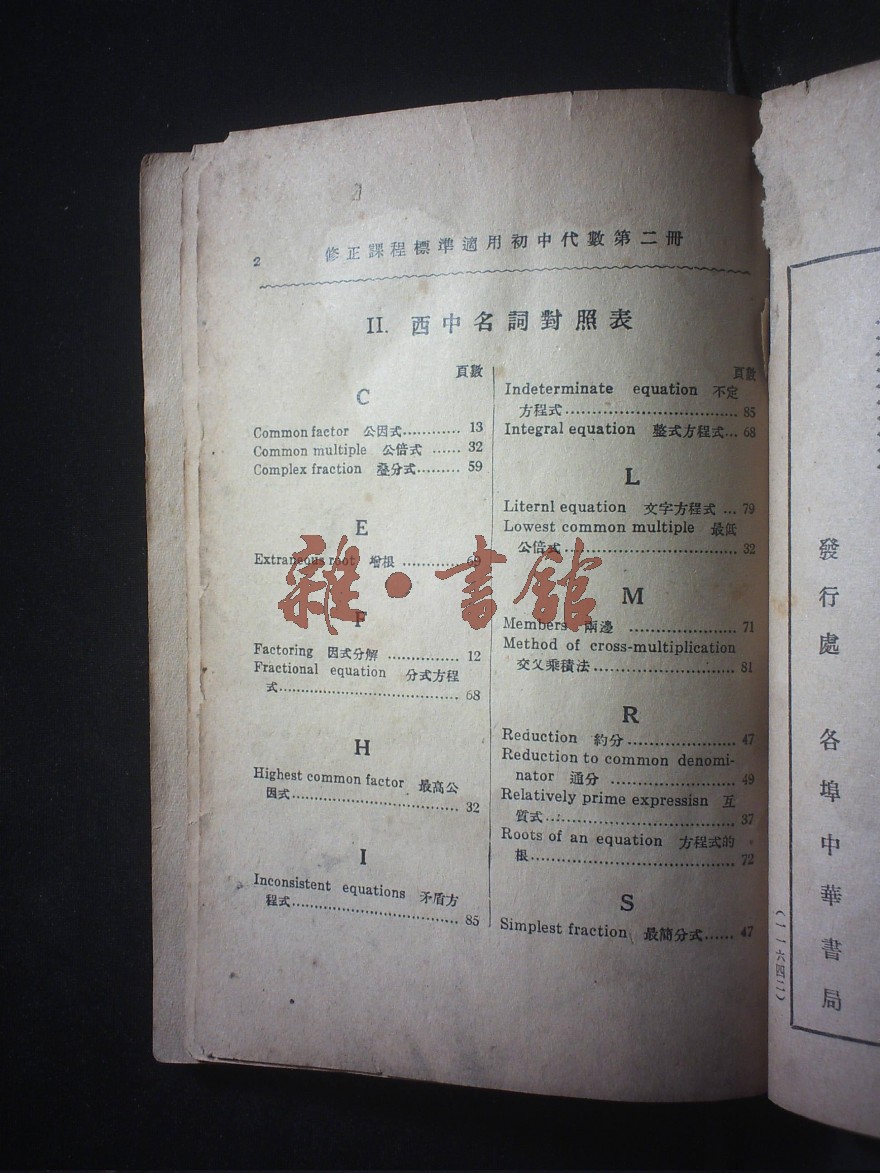 2
修正課程標準適用初中代數第二冊
II. 西中名詞對照表
頁數
C
Common factor 公因式............ 13
Common multiple 公倍式 ...... 32
Complex fraction 疊分式......... 59
E
Extraneous root 增根 ............ 69
F
Factoring 因式分解 ............... 12
Fractional equation 分式方程
式...................................... 68
H
Highest common factor 最高公
因式................................... 32
I
Inconsistent equations 矛盾方
程式................................... 85
頁數
Indeterminate equation 不定
方程式................................ 85
Integral equation 整式方程式... 68
L
Liternl equation 文字方程式 ... 79
Lowest common multiple 最低
公倍式................................ 32
M
Members 兩邊 .................... 71
Method of cross-multiplication
交叉乘積法.......................... 81
R
Reduction 約分..................... 47
Reduction to common denomi-
nator 通分 ........................ 49
Relatively prime expressisn 互
質式................................... 37
Roots of an equation 方程式的
根...................................... 72
S
Simplest fraction 最簡分式...... 47
發行處 各埠中華書局
(一一六四二)
雜·書館